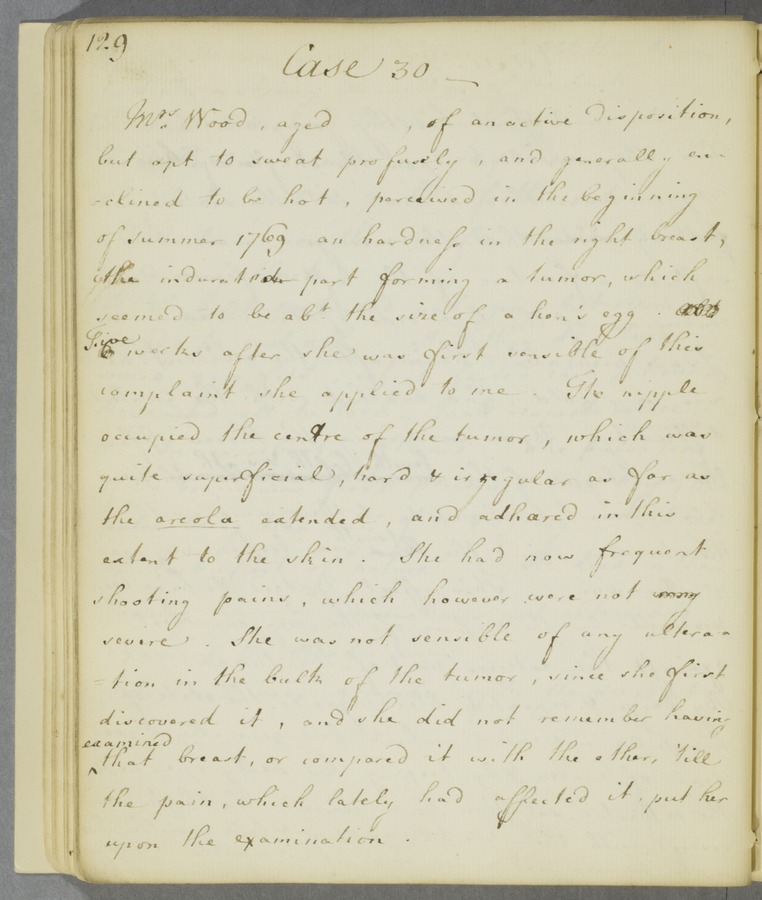 129
Case 30 —
Mrs. Wood, aged , of an active Disposition,
but apt to sweat profusely, and generally en-
-clined to be hot, perceived in the beginning
of summer 1769 an hardness in the right breast,
the indurated part forming a tumor, which
seemed to be abt. the size of a hen's egg.
Five weeks after she was first sensible of this
complaint she applied to me. The nipple
occupied the centre of the tumor, which was
quite superficial, hard & irregular as far as
the areola extended, and adhered in this
extent to the skin. She had now frequent
shooting pains, which however were not very
severe. She was not sensible of any altera-
-tion in the bulk of the tumor, since she first
discovered it, and she did not remember having
examined
that breast, or compared it with the other, 'till
the pain, which lately had affected it, put her
upon the examination.